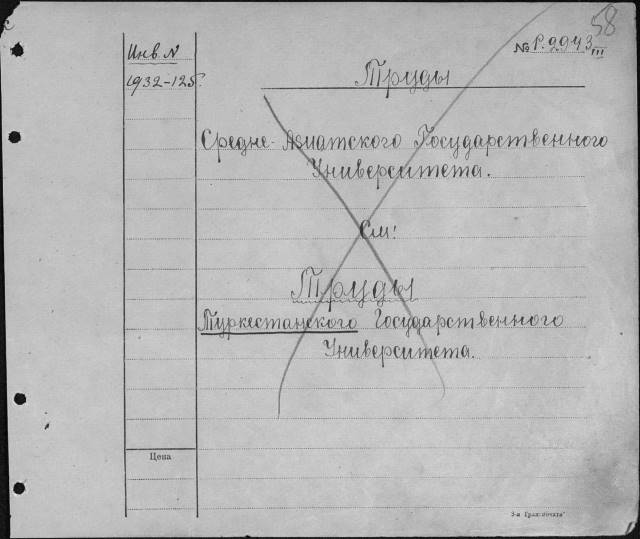 58
Инв. N
№ Р.9943 III
1932-125.
Труды
Средне-Азиатского Государственного
Университета.
См:
Труды
Туркестанского Государственного
Университета.
Цена